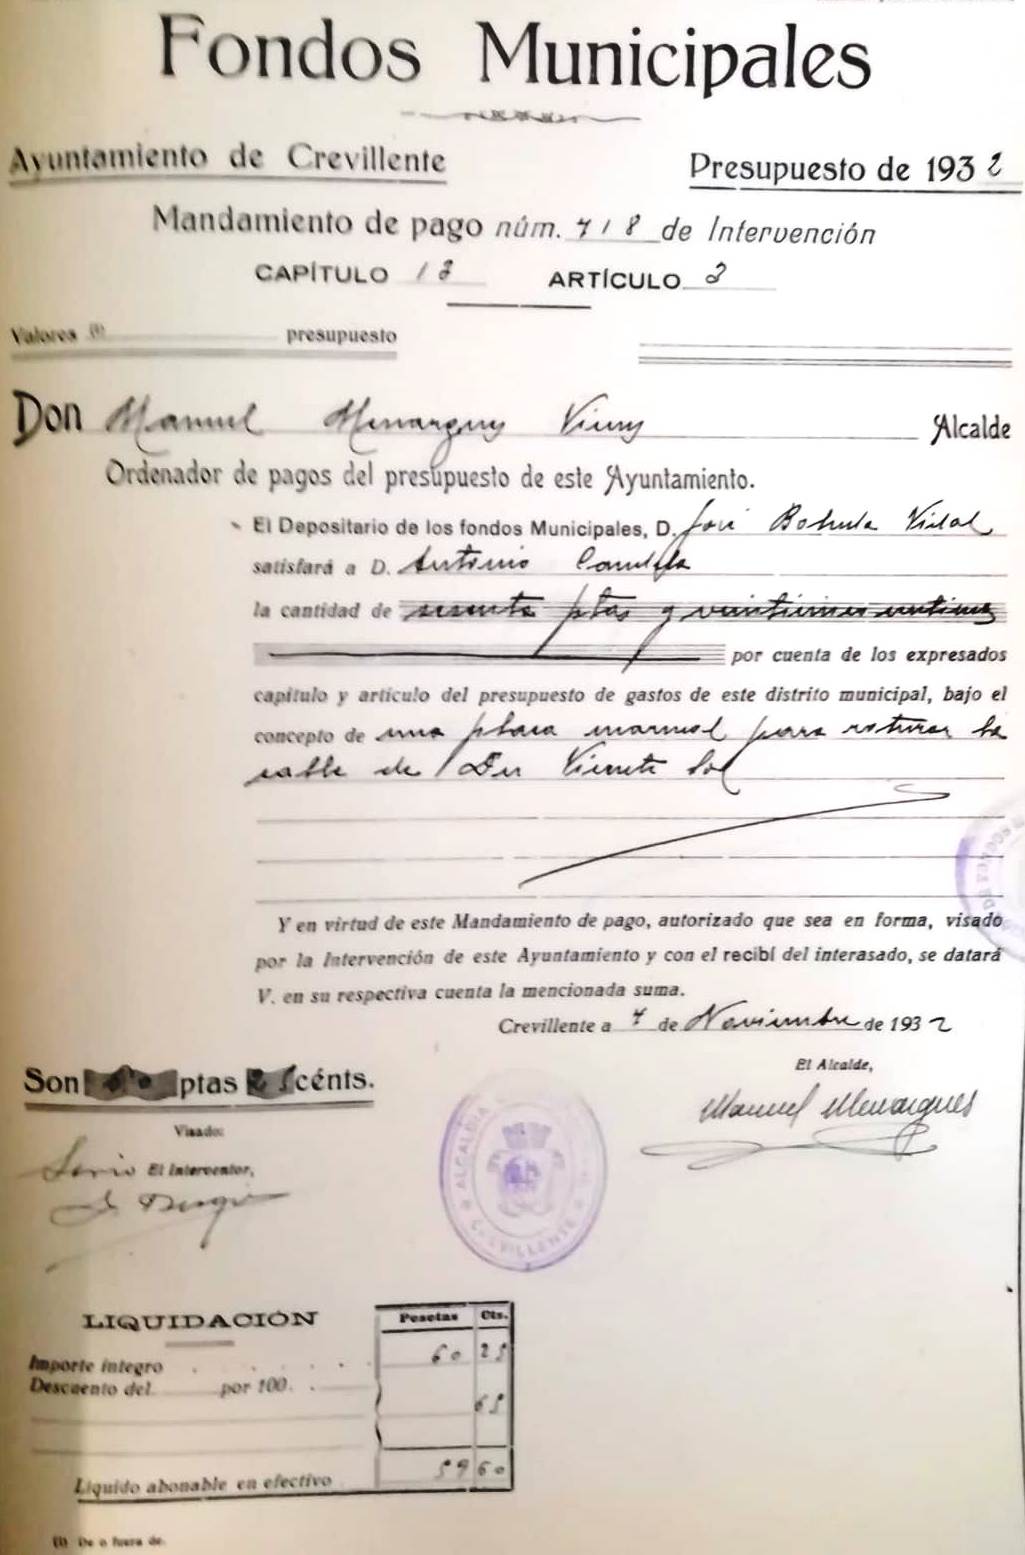 Fondos Municipales
Ayuntamiento de Crevillente
Presupuesto de 1932
Mandamiento de pago núm. 718 de Intervención
CAPÍTULO 13 ARTÍCULO 3
Valores (1) presupuesto
Don Manuel Menargues Alcalde
Ordenador de pagos del presupuesto de este Ayuntamiento.
El Depositario de los fondos Municipales, D. José Vidal
satisfará a D. Antonio Candela
la cantidad de sesenta ptas y veinticinco centimos
por cuenta de los expresados
capítulo y artículo del presupuesto de gastos de este distrito municipal, bajo el
concepto de una placa marmol para rotular la
calle de Don Vicente Sol
Y en virtud de este Mandamiento de pago, autorizado que sea en forma, visado
por la Intervención de este Ayuntamiento y con el recibí del interasado, se datará
V. en su respectiva cuenta la mencionada suma.
Crevillente a 7 de Noviembre de 1932
El Alcalde,
Son 60 ptas 25 cénts.
Manuel Menargues
Visado:
El Interventor,
ALCALDIA
CREVILLENTE
LIQUIDACIÓN
Pesetas Cts.
Importe íntegro 60 25
Descuento del por 100.
65
Líquido abonable en efectivo 59 60
(1) De o fuera de.